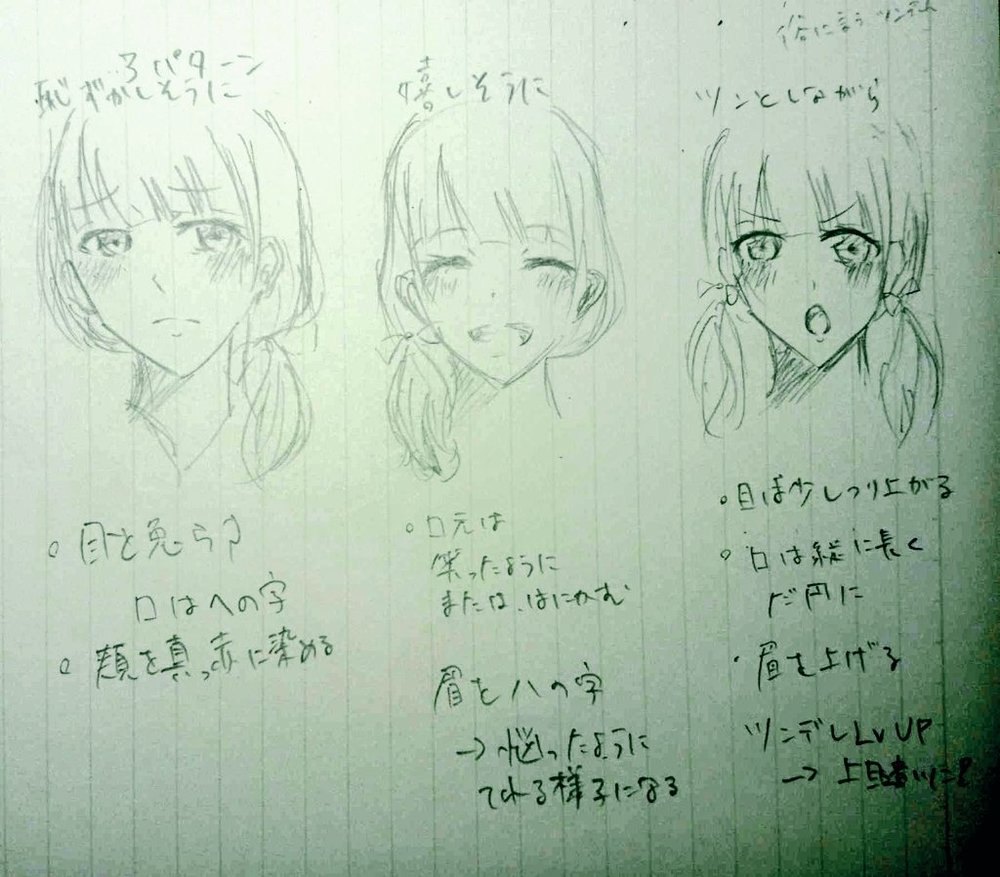 3パターン
恥ずかしそうに
目を逸らす
口はへの字
頬を真っ赤に染める
嬉しそうに
口元は
笑ったように
または、はにかむ
眉をハの字
→悩ったように
てれる様子になる
俗に言うツンデレ
ツンとしながら
目は少しつり上がる
口は縦に長く
だ円に
眉を上げる
ツンデレLvUP
→上目